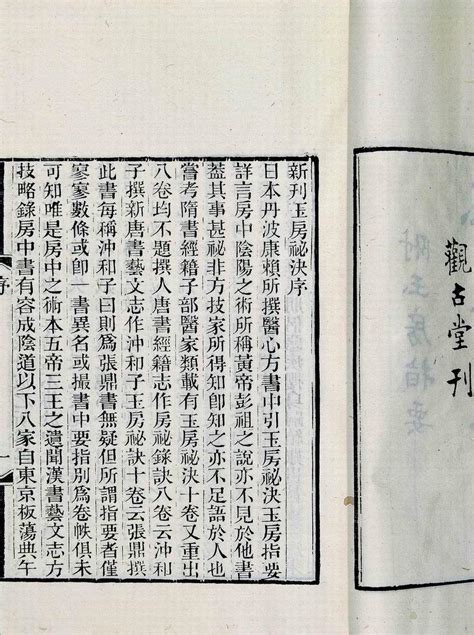 觀古堂刊
新刊玉房祕決序
日本丹波康賴所撰醫心方書中引玉房祕決玉房指要
詳言房中陰陽之術所稱黃帝彭祖之說亦不見於他書
蓋其事甚祕非方技家所得知卽知之亦不足語於人也
嘗考隋書經籍子部醫家類載有玉房祕決十卷又重出
八卷均不題撰人唐書經籍志作房祕錄訣八卷云沖和
子撰新唐書藝文志作沖和子玉房祕訣十卷云張鼎撰
此書每稱沖和子曰則爲張鼎書無疑但所謂指要者僅
寥寥數條或卽一書異名或撮書中要指別爲卷帙俱未
可知唯是房中之術本五帝三王之遺聞漢書藝文志方
技略錄房中書有容成陰道以下八家自東京板蕩典午
序
一